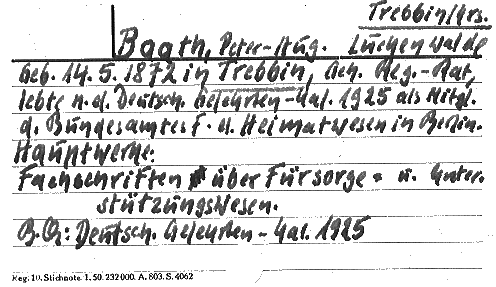 Trebbin/Krs.
Baath, Peter-Aug. Luckenwalde
Geb. 14. 5. 1872 in Trebbin, Geh. Reg.-Rat,
lebte n. d. Deutsch. Gelehrten-Kal. 1925 als Mitgl.
d. Bundesamtes f. d. Heimatwesen in Berlin.
Hauptwerke:
Fachschriften über Fürsorge- u. Unter-
stützungswesen.
B.Qu: Deutsch. Gelehrten-Kal. 1925
Reg. 10. Stichnote. 1. 50. 232 000. A. 803. S. 4062